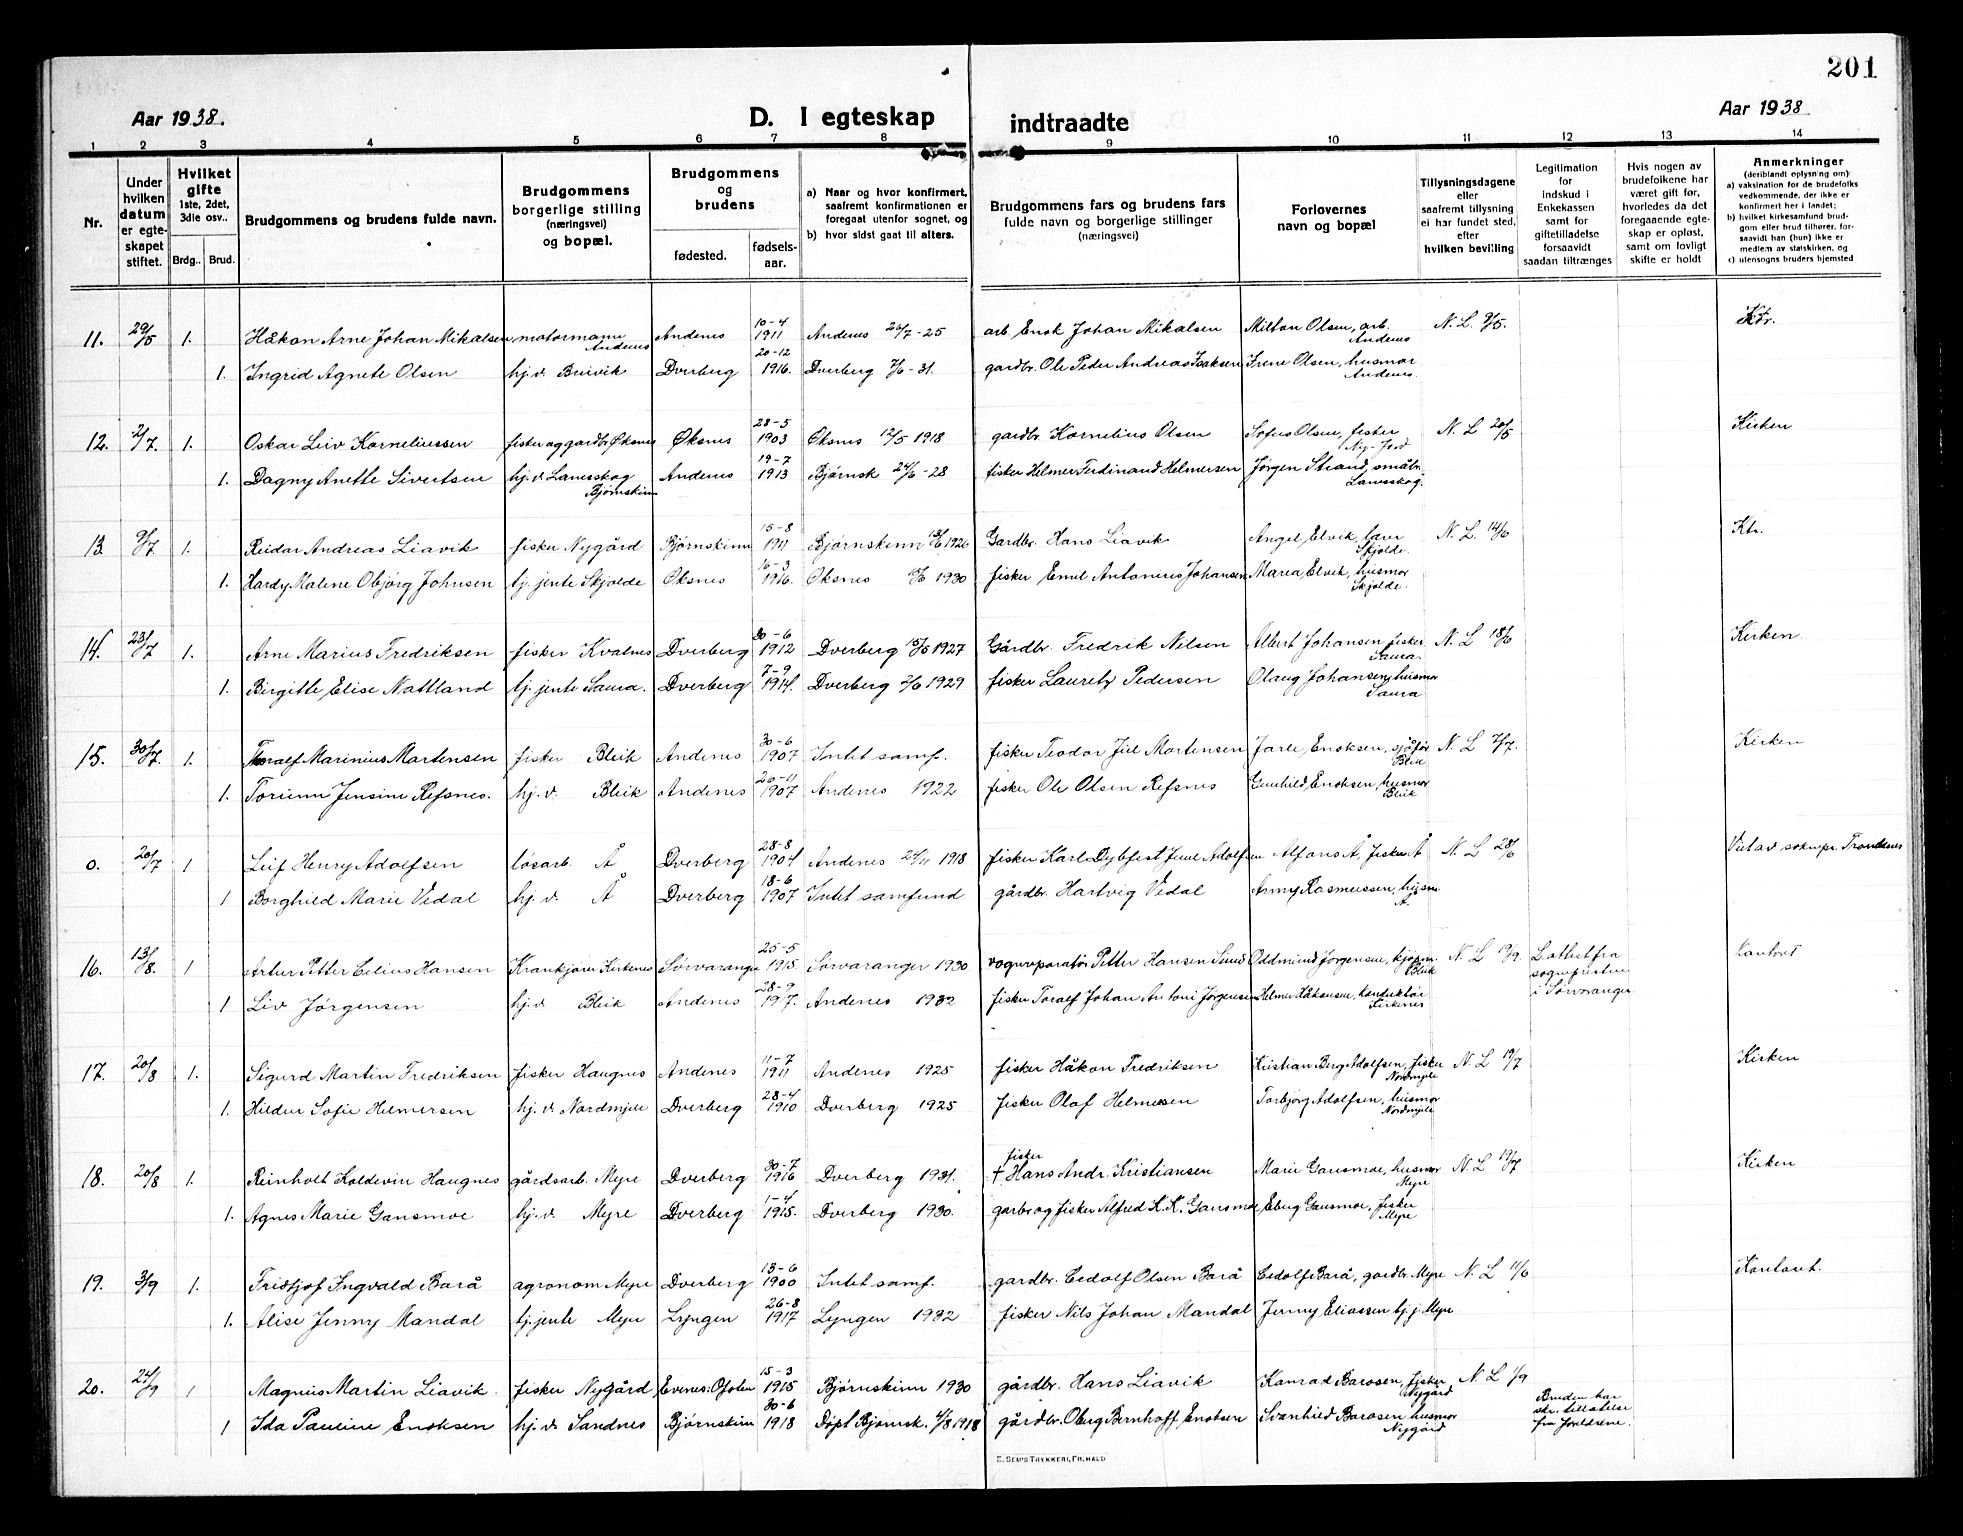 201
Aar 1938.
D. I egteskap
indtraadte
Aar 1938
1 2 3 4 5 6 7 8 9 10 11 12 13 14
Nr.
Under hvilken datum er egteskapet stiftet.
Hvilket gifte 1ste, 2det, 3die osv..
Brdg.. Brud.
Brudgommens og brudens fulde navn.
Brudgommens borgerlige stilling (næringsvei) og bopæl.
Brudgommens og brudens
fødested. fødselsaar.
a) Naar og hvor konfirmert, saafremt konfirmationen er foregaat utenfor sognet, og
b) hvor sidst gaat til alters.
Brudgommens fars og brudens fars fulde navn og borgerlige stillinger (næringsvei)
Forlovernes navn og bopæl
Tillysningsdagene eller saafremt tillysning ei har fundet sted, efter hvilken bevilling
Legitimation for indskud i Enkekassen samt for giftetilladelse forsaavidt saadan tiltrænges
Hvis nogen av brudefolkene har været gift før, hvorledes da det foregaaende egteskap er opløst, samt om lovligt skifte er holdt
Anmerkninger (deriblandt oplysning om):
a) vaksination for de brudefolks vedkommende, der ikke er konfirmert her i landet;
b) hvilket kirkesamfund brudgom eller brud tilhører, forsaavidt han (hun) ikke er medlem av statskirken, og
c) utensogns bruders hjemsted
11. 29/5 1. Håkon Arne Johan Mikalsen motormann Andenes Andenes 10-4 1911 Andenes 26/7-25 arb. Enok Johan Mikalsen Milton Olsen, arb. Andenes N. L. 9/5. Ktr.
1. Ingrid Agnete Olsen hj.v. Breivik Dverberg 20-12 1916. Dverberg 7/6-31. gardbr. Ole Peder Andreas Isaksen Irene Olsen, husmor Andenes.
12. 2/7. 1. Oskar Leiv Korneliussen fisker og gardbr. Øksnes Øksnes 28-5 1903 Øksnes 12/5 1918 gardbr. Kornelius Olsen Sofus Olsen, fisker Ny-Jord N. L 20/5 Kirken
1. Dagny Anette Sivertsen hj.v. Lanesskog Bjørnskinn Andenes 19-7 1913 Bjørnsk 24/6-28 fisker Helmer Ferdinand Helmersen Jørgen Strand, småbr. Lanesskog.
13. 9/7 1. Reidar Andreas Liavik fisker Nygård Bjørnskinn 15-8 1911 Bjørnskinn 13/6 1926 Gardbr. Hans Liavik Angel Elvik, lærer Skjolde. N. L. 14/6 Ktr.
1. Hardy Malene Objørg Johnsen tj. jente Skjolde Øksnes 16-3 1916. Øksnes 15/6 1930 fisker Emil Antonius Johansen Marea Elvik, husmor Skjolde.
14. 23/7 1. Arne Marius Fredriksen fisker Kvalnes Dverberg 30-6 1912 Dverberg 15/5 1927 Gårdbr. Fredrik Nilsen Albert Johansen, fisker Saura. N. L 18/6 Kirken
1. Birgitte Elise Nattland tj. jente Saura. Dverberg 7-9 1914. Dverberg 2/6 1929 fisker Lauretz Pedersen Olaug Johansen, husmor Saura
15. 30/7. 1. Toralf Marinius Martensen fisker Bleik Andenes 30-6 1907 Intet samf. fisker Teodor Juel Mortensen Jarle Enoksen, sjåfør Bleik N. L 7/7. Kirken
1. Torunn Jensine Refsnes. hj.v. Bleik Andenes 20-11 1907 Andenes 1922 fisker Ole Olsen Refsnes Gunhild Enoksen, husmor Bleik
0. 20/7 1 Leif Henry Adolfsen løsarb. Å Dverberg 28-8 1904 Andenes 24/11 1918 fisker Karl Dybfest Juul Adolfsen Alfons Å, fisker Å N. L 28/6 Viet av soknepr. Trondenes
1 Borghild Marie Vedal hj.v. Å Dverberg 18-6 1907 Intet samfund gårdbr. Hartvig Vedal Anny Rasmussen, husm. Å.
16. 13/8. 1 Artur Petter Celius Hansen Krankjører Kirkenes Sørvaranger 25-5 1915. Sørvaranger 1930 vognreparatør Petter Hansen Sund Oddmund Jørgensen, kjøpm. Bleik N. L L. attest fra sognepresten i Sørvaranger Kontoret
1 Liv Jørgensen hj.v Bleik Andenes 28-9 1917. Andenes 1932 fisker Toralf Johan Antoni Jørgensen Helmer Håkonsen, Konduktør Kirkenes
17. 20/8 1. Sigurd Martin Fredriksen fisker Haugnes Andenes 11-7 1911 Andenes 1925 fisker Håkon Fredriksen Kristian Berg Adolfsen, fisker Nordmjele N. L 19/7 Kirken
1. Hildur Sofie Helmersen hj.v. Nordmjele Dverberg 28-4 1910 Dverberg 1925 fisker Olaf Helmersen Torbjørg Adolfsen, husmor Nordmjele
18. 20/8 1. Reinholt Koldevin Haugnes gårdsarb. Myre Dverberg 30-7 1916 Dverberg 1931. fisker † Hans Andr. Kristiansen Marie Gansmoe, husmor Myre N. L 19/7 Kirken
1. Agnes Marie Gansmoe hj.v. Myre Dverberg 1-4 1915. Dverberg 1930. garbr og fisker Alfred K. K. Gansmoe Eberg Gansmoe, fisker Myre
19. 3/9 1. Fridtjof Ingvald Barå agronom Myre Dverberg 13-6 1900 Intet samf. gardbr. Cedolf Olsen Barå Cedolf Barå, gardbr. Myre N. L 11/6 Kontoret.
1. Alise Jenny Mandal tj. jente Myre Lyngen 26-8 1917 Lyngen 1932 fisker Nils Johan Mandal Jenny Eliassen tj.j. Myre
20. 24/9 1 Magnus Martin Liavik. fisker Nygård Evenes. Ofoten 15-3 1915 Bjørnskinn 1930 gårdbr. Hans Liavik Konrad Barosen, fisker Nygård N L 1/9
1 Ida Pauline Enoksen hj.v. Sandnes Bjørnskinn 30-6 1918 Døpt Bjørnsk. 4/8 1918 gårdbr. Oberg Bernhoff Enoksen Svanhild Barosen husmor Nygård Bruden har skr. tillatelse fra foreldrene.
E. SEM'S TRYKKERI, FR.HALD